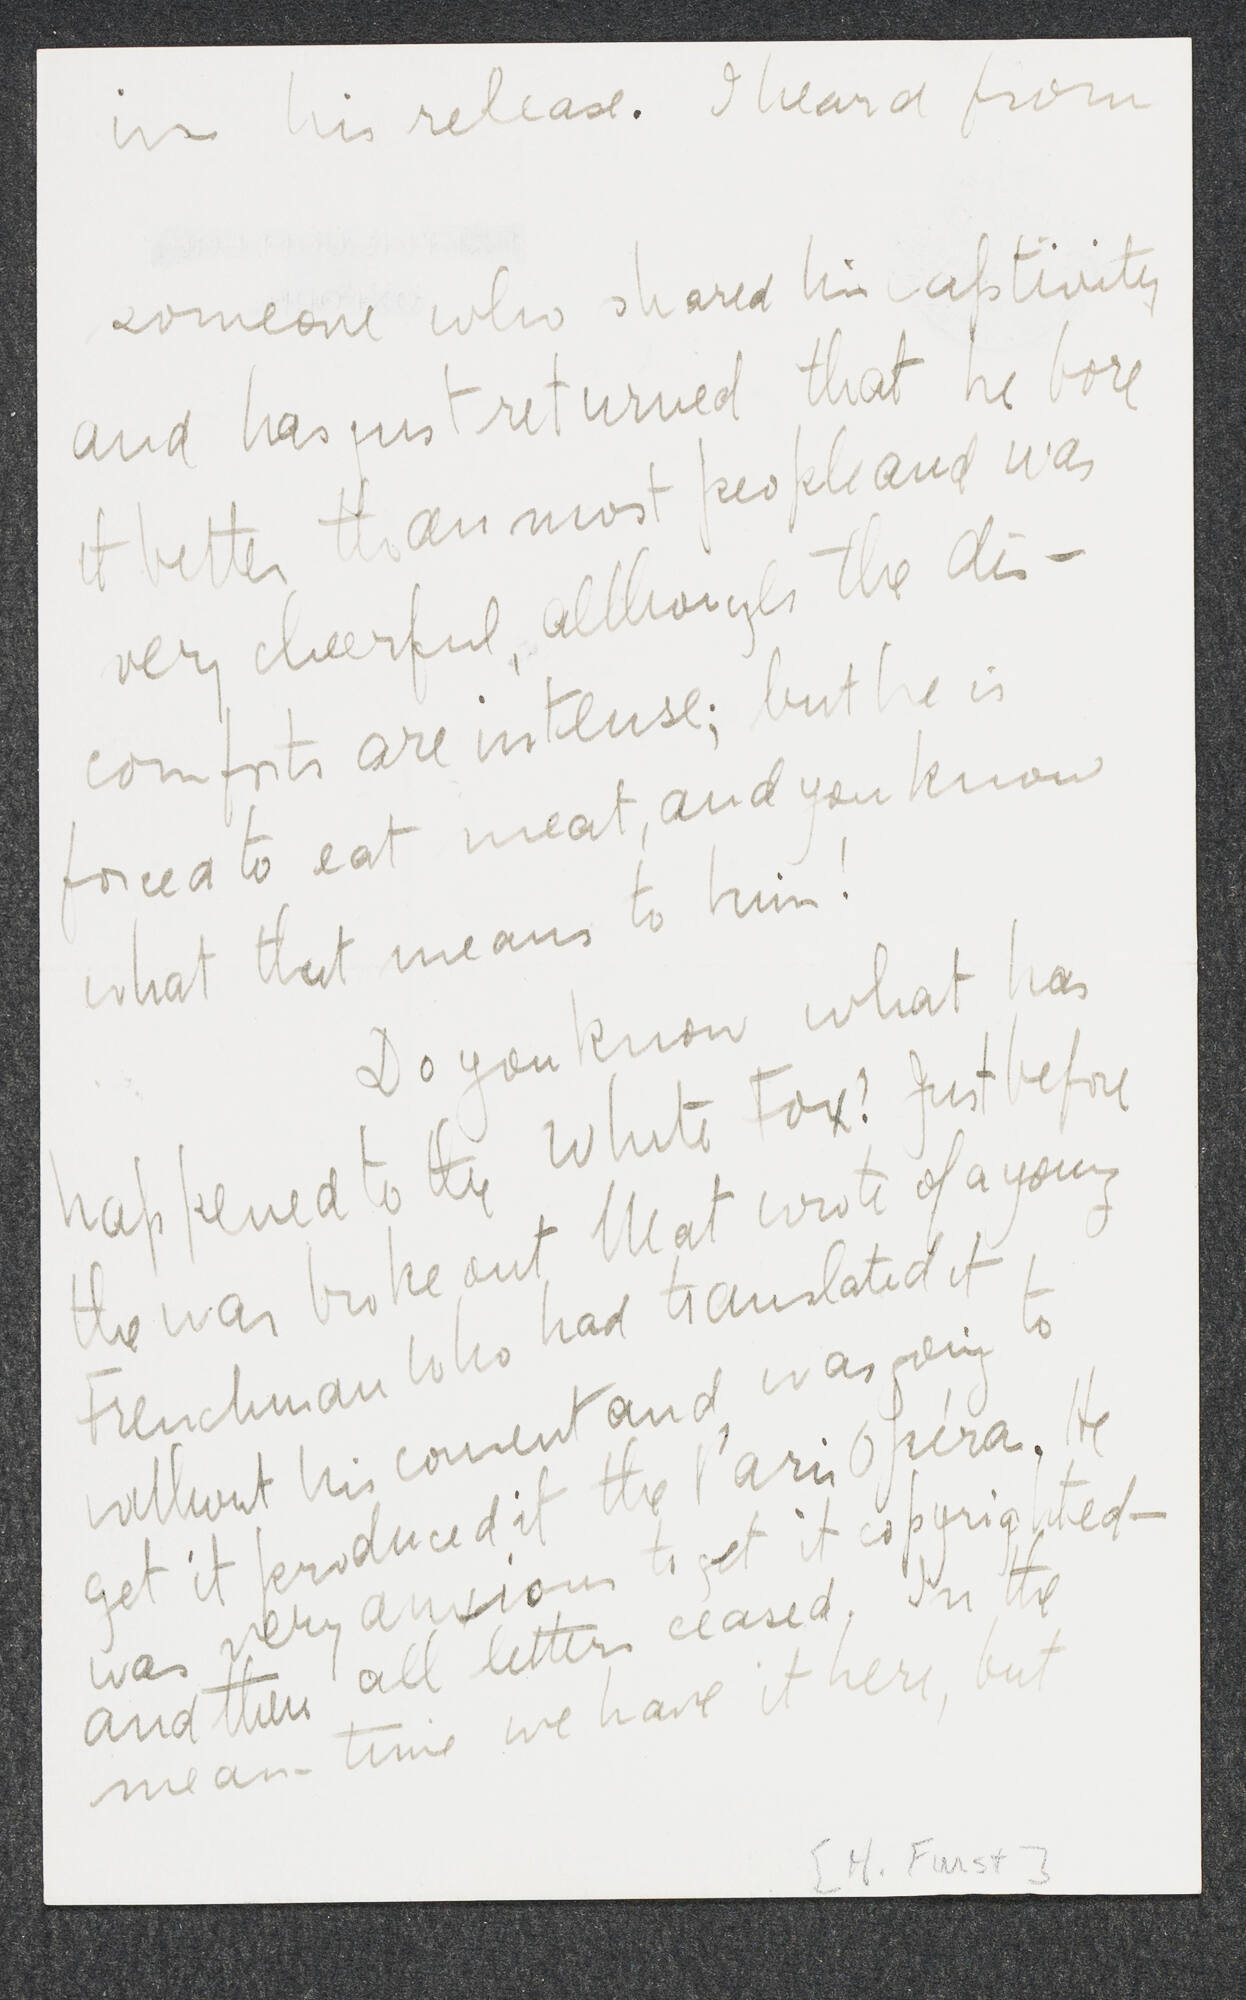 in his release. I heard from
someone who shared his captivity
and has just returned that he bore
it better than most people and was
very cheerful, although the dis-
comforts are intense; but he is
forced to eat meat, and you know
what that means to him!
Do you know what has
happened to the White Fox? Just before
the war broke out Mat wrote of a young
Frenchman who had translated it
without his consent and was going to
get it produced at the Paris Opéra. He
was very anxious to get it copyrighted—
and then all letters ceased. In the
mean-time we have it here, but
[H. Furst]